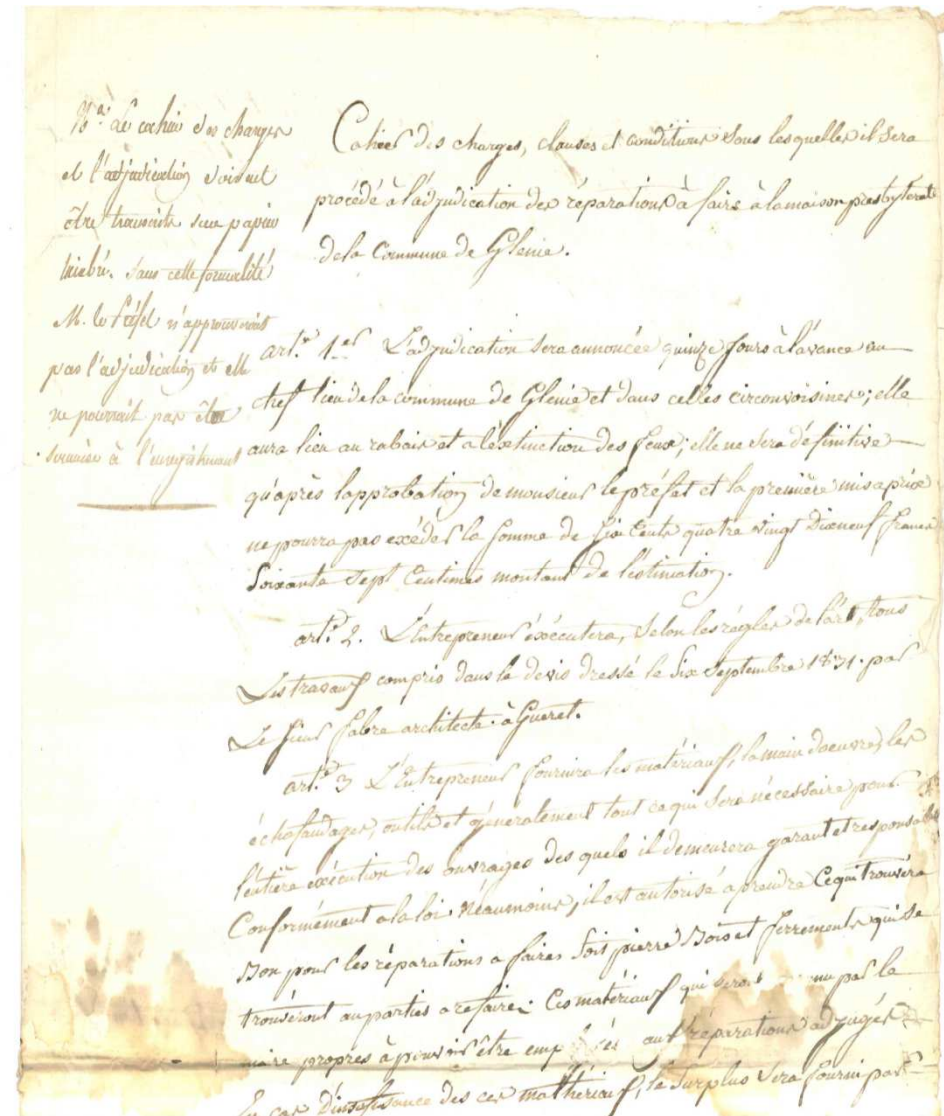 Na. Le cahier des charges
et l'adjudication doivent
être transcrits sur papier
timbré. Sans cette formalité
M. le Préfet n'approuverait
pas l'adjudication et elle
ne pourrait pas être
soumise à l'enregistrement
Cahier des charges, clauses et conditions sous lesquelles il sera
procédé à l'adjudication des réparations à faire à la maison presbyterale
de la Commune de Glenie.
art.e 1.er L'adjudication sera annoncée quinze jours à l'avance au
chef lieu de la commune de Glenie et dans celles circonvoisines; elle
aura lieu au rabais et a l'extinction des feux; elle ne sera définitive
qu'après l'approbation de monsieur le préfet et la première mis a prix
ne pourra pas exéder la somme de six cents quatre vingt dix neuf francs
soixante sept centimes montant de l'estimation.
art.e 2. L'Entrepreneur éxécutera, selon les régles de l'art, tous
Les travaux compris dans le devis dressé le six septembre 1831. par
Le sieur fabre architecte à Gueret.
art.e 3 L'Entrepreneur fournira les matériaux, la main d'oeuvre, les
échafaudages, outils et généralement tout ce qui sera nécessaire pour
l'entière exécution des ouvrages des quels il demeurera garant et responsable
Conformément a la loi. Néaumoins, il est autorisé a prendre Ce qui trouvéra
Bon pour les réparations a faires soit pierre Bois et ferrements qui se
trouveront au parties a refaire. Ces matériaux qui par le
maire propres à pouvoir être aux réparations adjugés
En cas D'insufisance des ces mathériaux, le surplus sera fourni par